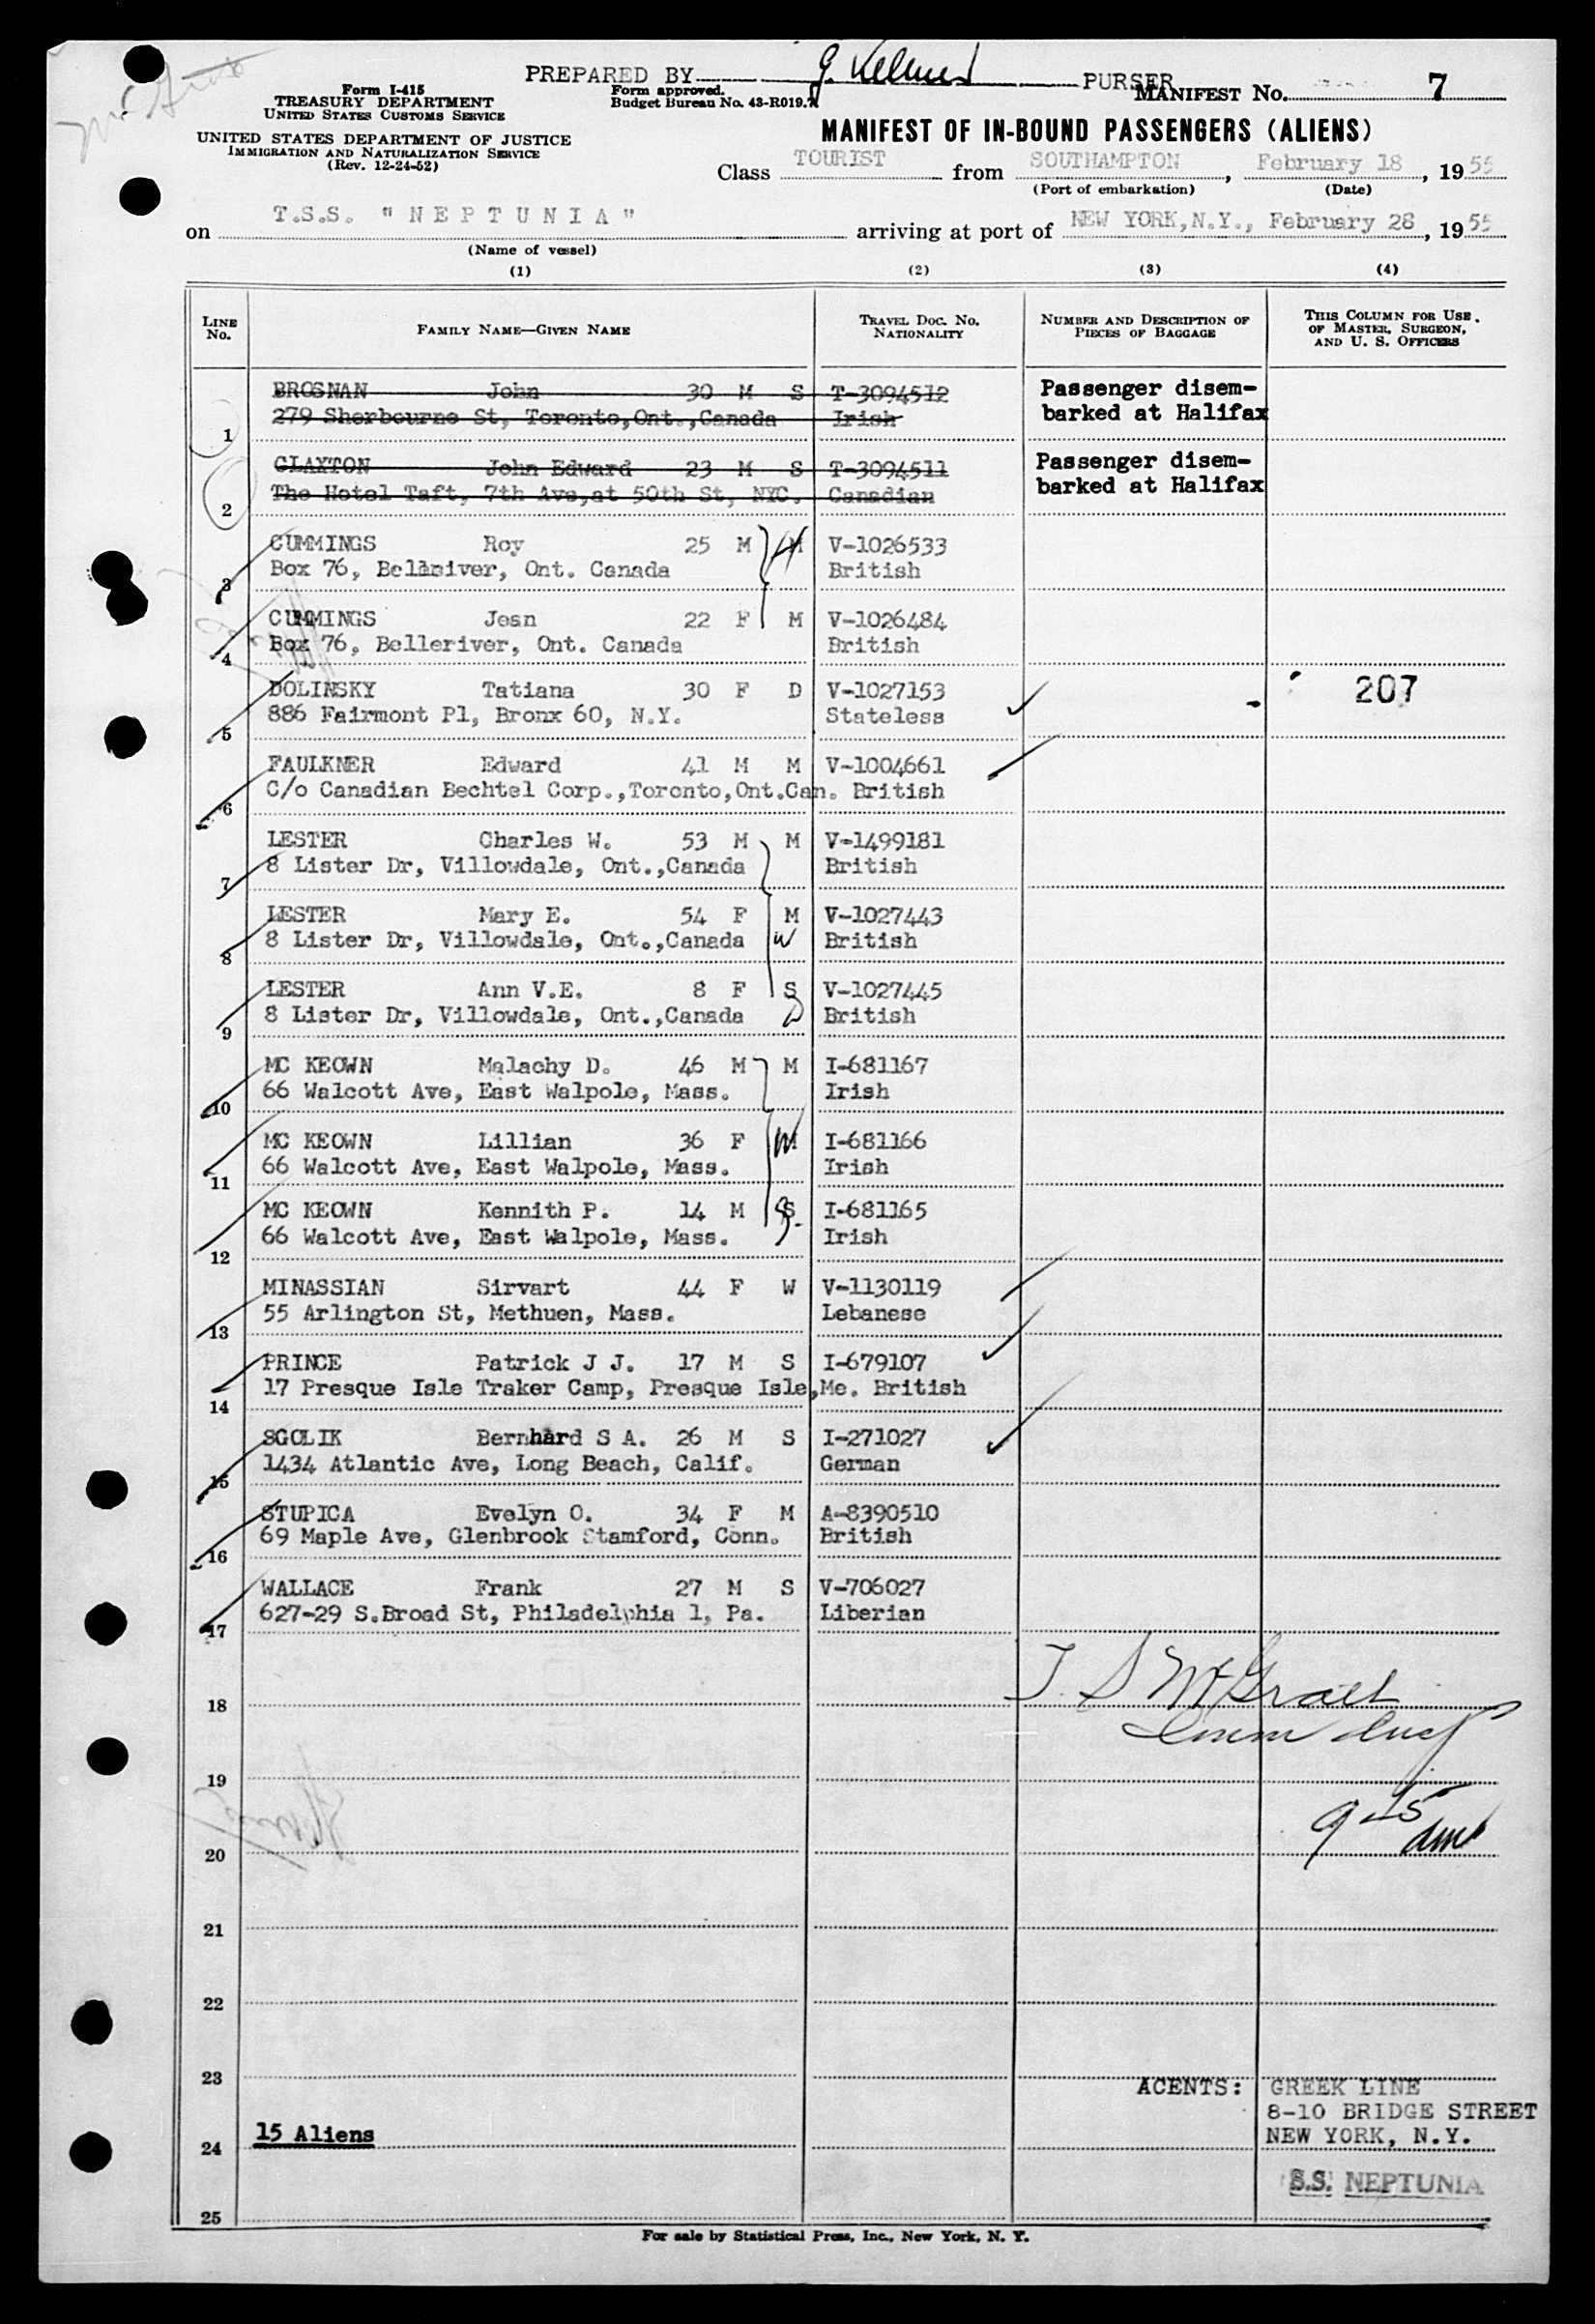 PREPARED BY PURSER
Form I-415
TREASURY DEPARTMENT
UNITED STATES CUSTOMS SERVICE
UNITED STATES DEPARTMENT OF JUSTICE
IMMIGRATION AND NATURALIZATION SERVICE
(Rev. 12-24-52)
Form approved.
Budget Bureau No. 43-R019.
MANIFEST No. 7
MANIFEST OF IN-BOUND PASSENGERS (ALIENS)
Class TOURIST from SOUTHAMPTON, February 18, 1955
(Port of embarkation) (Date)
on T.S.S. "NEPTUNIA" arriving at port of NEW YORK,N.Y., February 28, 1955
(Name of vessel)
(1) (2) (3) (4)
LINE No. FAMILY NAME—GIVEN NAME TRAVEL DOC. NO. NATIONALITY NUMBER AND DESCRIPTION OF PIECES OF BAGGAGE THIS COLUMN FOR USE OF MASTER, SURGEON, AND U. S. OFFICERS
BROSNAN John 30 M S T-3094512 Passenger disem-
1 279 Sherbourne St, Toronto,Ont.,Canada Irish barked at Halifax
CLAYTON John Edward 23 M S T-3094511 Passenger disem-
2 The Hotel Taft, 7th Ave,at 50th St, NYC. Canadian barked at Halifax
CUMMINGS Roy 25 M M V-1026533
3 Box 76, Belleriver, Ont. Canada British
CUMMINGS Jean 22 F M V-1026484
4 Box 76, Belleriver, Ont. Canada British
DOLINSKY Tatiana 30 F D V-1027153 207
5 886 Fairmont Pl, Bronx 60, N.Y. Stateless
FAULKNER Edward 41 M M V-1004661
6 C/o Canadian Bechtel Corp.,Toronto,Ont.Can. British
LESTER Charles W. 53 M M V-1499181
7 8 Lister Dr, Villowdale, Ont.,Canada British
LESTER Mary E. 54 F M V-1027443
8 8 Lister Dr, Villowdale, Ont.,Canada W British
LESTER Ann V.E. 8 F S V-1027445
9 8 Lister Dr, Villowdale, Ont.,Canada D British
MC KEOWN Malachy D. 46 M M I-681167
10 66 Walcott Ave, East Walpole, Mass. Irish
MC KEOWN Lillian 36 F M I-681166
11 66 Walcott Ave, East Walpole, Mass. Irish
MC KEOWN Kennith P. 14 M S I-681165
12 66 Walcott Ave, East Walpole, Mass. Irish
MINASSIAN Sirvart 44 F W V-1130119
13 55 Arlington St, Methuen, Mass. Lebanese
PRINCE Patrick J J. 17 M S I-679107
14 17 Presque Isle Traker Camp, Presque Isle,Me. British
SGOLIK Bernhard S A. 26 M S I-271027
15 1434 Atlantic Ave, Long Beach, Calif. German
STUPICA Evelyn O. 34 F M A-8390510
16 69 Maple Ave, Glenbrook Stamford, Conn. British
WALLACE Frank 27 M S V-706027
17 627-29 S.Broad St, Philadelphia 1, Pa. Liberian
18 T. S McGrath
19 Imm Insp
20 9 15 am
21
22
23 AGENTS: GREEK LINE
8-10 BRIDGE STREET
24 15 Aliens NEW YORK, N.Y.
S.S. NEPTUNIA
25
For sale by Statistical Press, Inc., New York, N. Y.